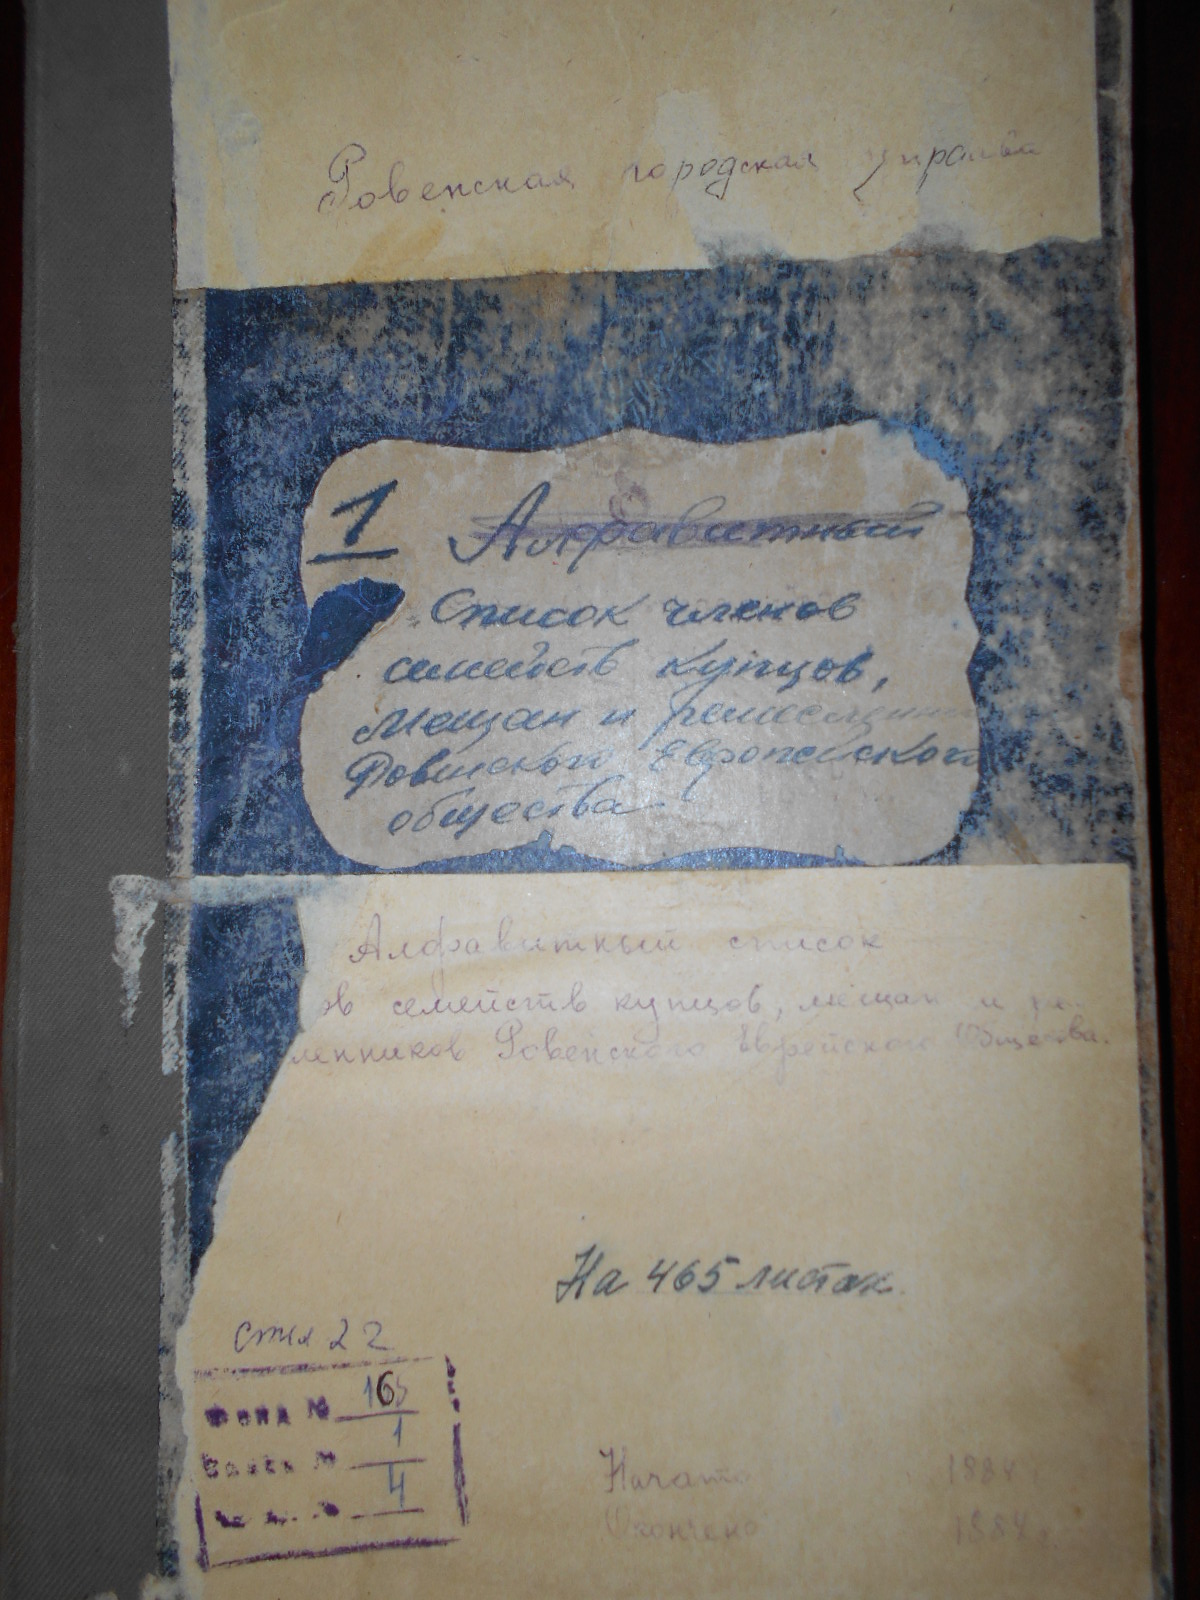 Ровенская городская управа
1 Алфавитный
Список членов
семейств купцов,
мещан и ремесленни
Ровенского Европейского
общества
Алфавитный список
ов семейств купцов, мещан и ре-
ленников Ровенского Еврейского Общества.
На 465 листах.
22
Фонд № 165
№ 1
4
Начато 1884
Окончено 1884